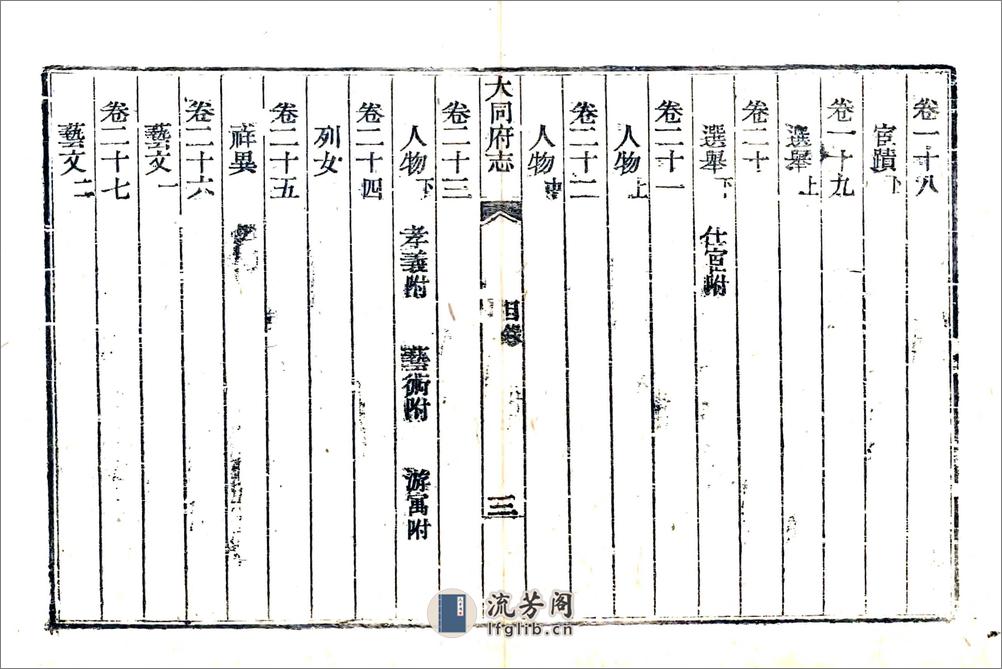 卷一十八
宦蹟下
卷一十九
選舉上
卷二十
選舉下 仕宦附
卷二十一
人物上
卷二十二
人物中
大同府志 目錄 三
卷二十三
人物下 孝義附 藝術附 游寓附
卷二十四
列女
卷二十五
祥異
卷二十六
藝文一
卷二十七
藝文二
流芳阁
lfglib.cn